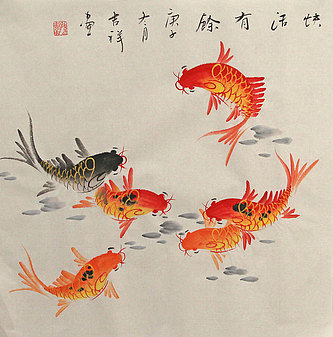 快活有餘
庚子
六月
吉祥
畫